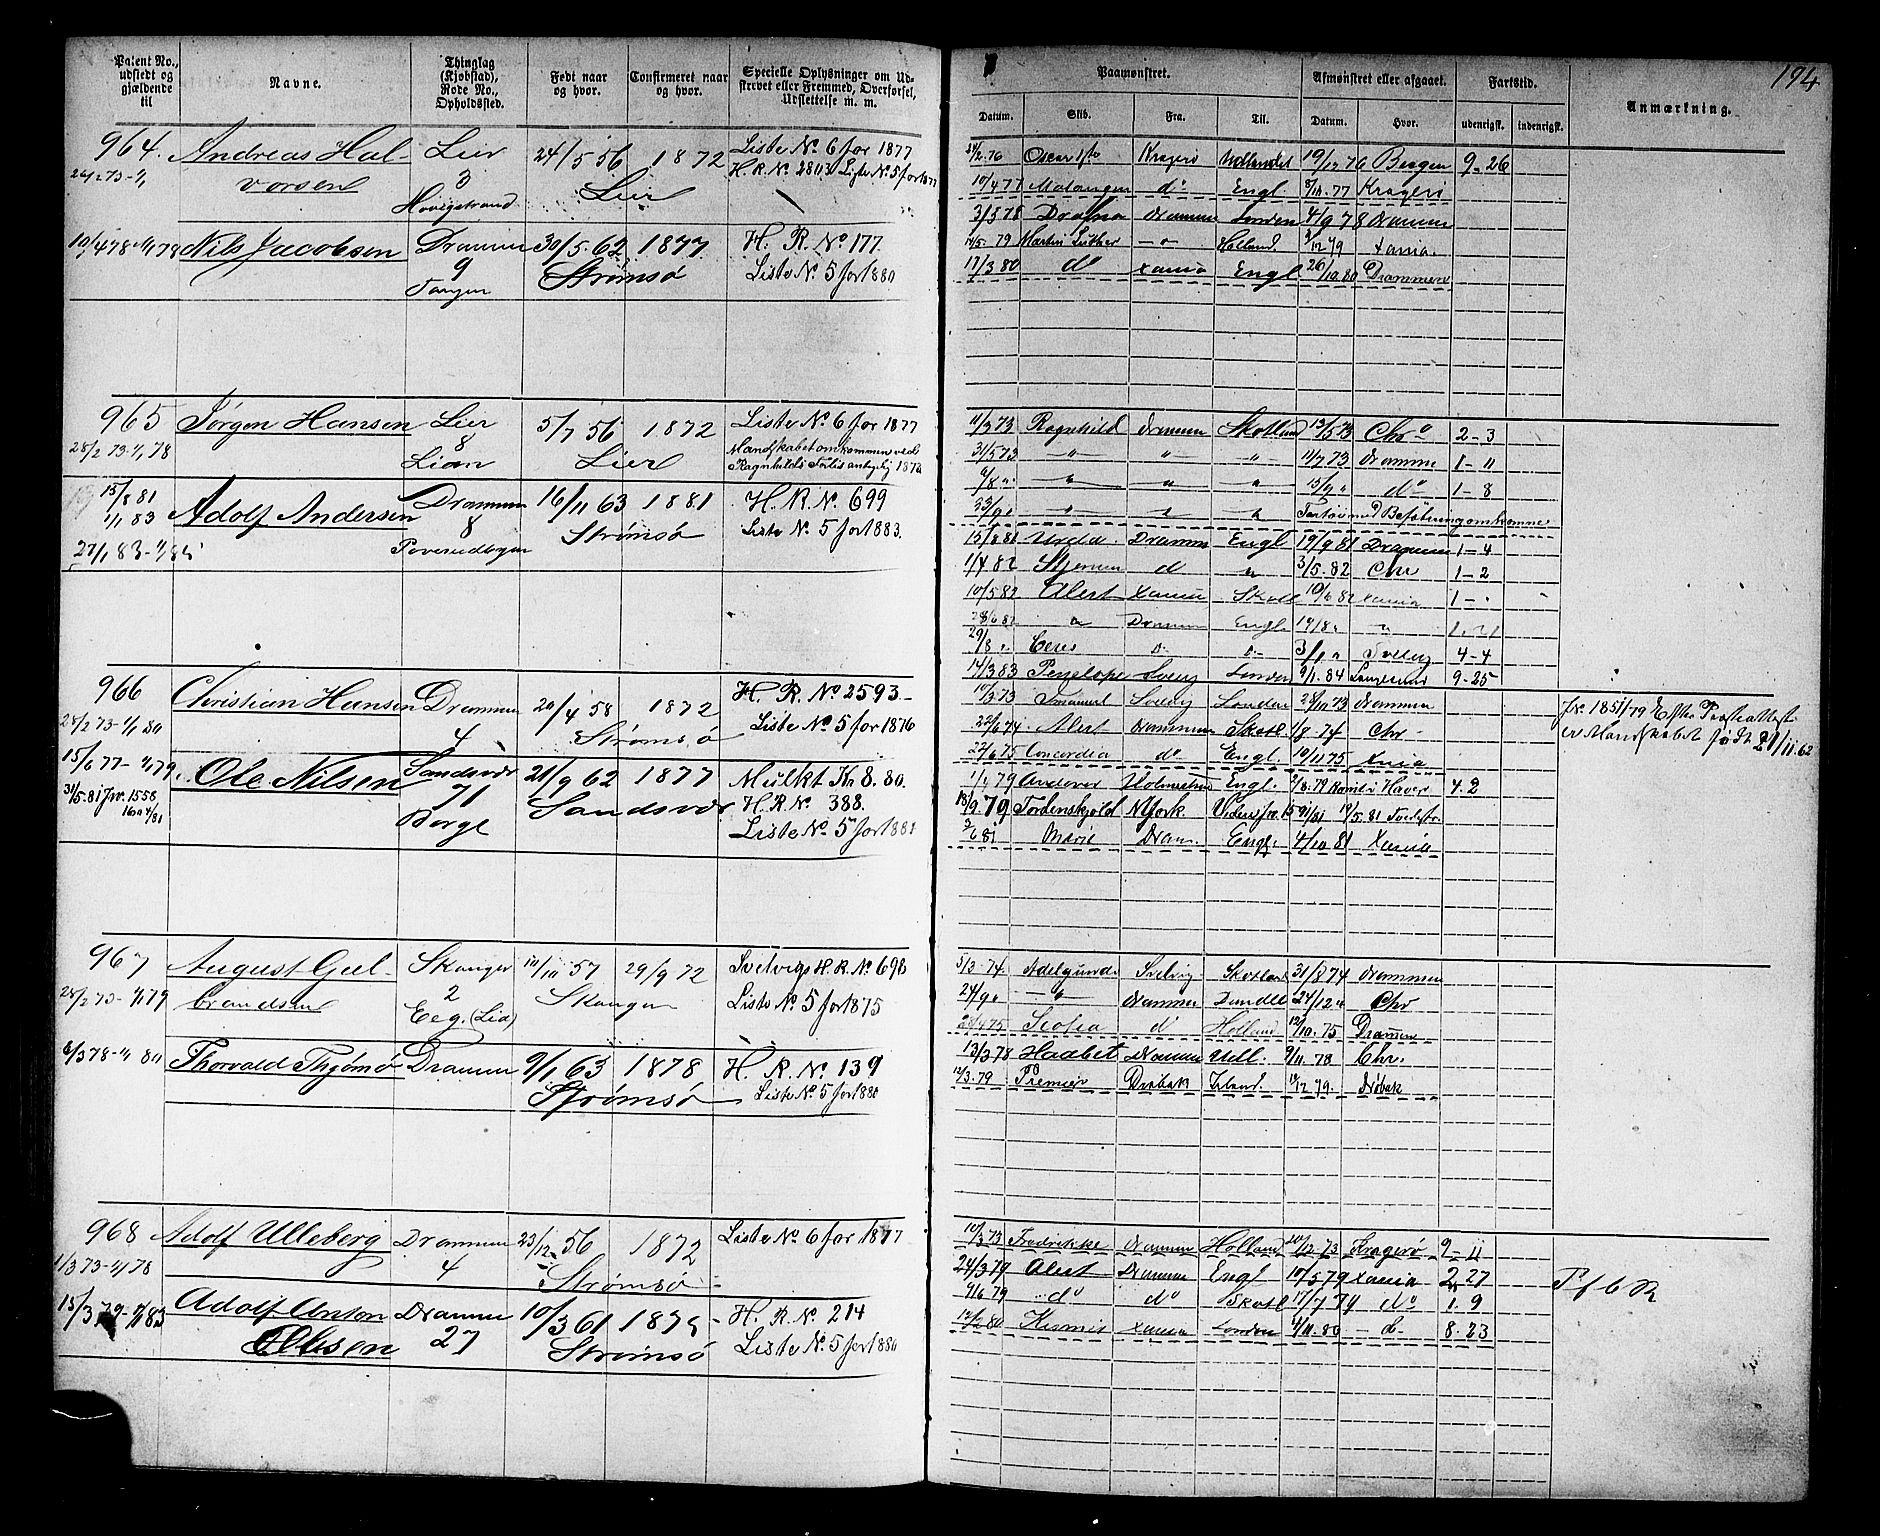 194
Patent No., udstedt og gjældende til
Navne.
Thinglag (Kjøbstad), Rode No., Opholdssted.
Født naar og hvor.
Confirmeret naar og hvor.
Specielle Oplysninger om Udskrevet eller Fremmed, Overførsel, Udslettelse m. m.
Paamønstret.
Afmønstret eller afgaaet.
Fartstid.
Anmærkning.
Datum. Skib. Fra. Til. Datum. Hvor. udenrigsk. indenrigsk.
964. Andreas Hal- Lier 24/5 56 1872 Liste No 6 for 1877
vorsen 3 Lier H.R.No 2803 Liste No 5 for
Høvigstrand
Nils Jacobsen Drammen 30/5.62 1877 H. R. No 177.
9 Strømsø Liste No 5 for 1880
Tangen
Oscar 1ste Kragerø 19/12 76 Bergen 9-26
10/4 77 Malangen do Engl. 77 Kragerø
2/5 78 Drafna Drammen London 4/9 78 Drammen
14/5.79 Martin Luther Holland. 2/12 79 Xania.
17/3 80 do Xania Engl. 26/10.80 Drammen
965 Jørgen Hansen Lier 5/7 56 1872 Liste No 6 for 1877
28/2 73-1/1 78 8 Lier Mandskabet omkommen ved
Lian Ragnhilds Forlis antagelig 1873
15/8 81 Adolf Andersen Drammen 16/11 63 1881 H. R. No. 699
1/1 83 8 Strømsø Liste No. 5 for 1883.
27/1 83-1/1 85
11/3 73 Ragnhild Drammen Skotland 13/5 73 Chra 2-3
31/5 73 " " " 11/7 73 Drammen 1-11
6/8 " " " " 15/11 " do 1-8
23/9 " " " " Fartøi med Besætning omkomne
15/8 81 Urda. Dramm Engl 19/9 81 Drammen 1-4
1/4 82 Stjernen d " 3/5.82 Chr 1-2
10/5 82 Alert Xania Skotl 10/6 82 Xania 1-"
" Drammen Engl. 19/8 " "
29/8 " Ceres 4-4
14/3 83 Penelope Svelvig London 9/1.84 Langesund 9-25
966 Christian Hansen Drammen 20/4 58 1872 H. R. No 2593-
28/2 73-1/1 80 4 Strømsø Liste No 5 for 1876
15/6 77-1/1 79 Ole Nilsen Sandsvær 21/9 62 1877 Mulkt Kr 8.80.
31/5.81 Jnr. 1558 71 Sandsvær H.R.No 388.
Borge Liste No 5 for 1881
10/3 73 Imanuel Svelvig London 28/10 73 Drammen
22/6 74 Alert Drammen Skotl. 1/8.74 Chr
22/6 75 Concordia do Engl. 19/11 75 Xnia
Engl. 2/8.79 4.2
18/9 79 Tordenskjold N York 19/5.81
2/6 81 Marie Dram. Engl. 4/10 81 Xania
Jnr 1851/79 Efter Præsteattest
er Mandskabet født 21/11.62
967 August Gul- Skouger 10/10 57 29/9 72 Svelvigs H.R.No 698
28/2 73-1/1 79 brandsen 2 Skouger Liste No 5 for 1875
Eeg. (Lia)
6/3 78-1/1 80 Thorvald Thjømø Drammen 9/1 63 1878 H. R. No. 139
Strømsø Liste No. 5 for 1880
5/3-74. Adelgunde Svelvig Skotland 31/8 74 Drammen
24/9 " " Drammen Dundee 24/12 " Chr
Scotia d Holland 12/10.75 Drammen
13/3 78 Haabet Drammen 9/11.78 Chr.
12/3.79 Premier Drøbak 79. Drøbak
968 Adolf Ulleberg Drammen 23/12 56 1872 Liste No 6 for 1877
1/3 73-1/1 78 4 Strømsø
15/3 79-1/1 83 Adolf Anton Drammen 10/3 61 1875 H. R. No. 214
Olsen 27 Strømsø Liste No 5 for 1880
10/3 73 Fredrikke Drammen Holland 20/12 73 Kragerø 9-11
24/3 79 Alert Drammen Engl 10/5 79 Xania 2.27
9/6 79 do do Skotl 17/7 79 do 1.9
12/2 80 Xania London 4/11.80 do 8.23